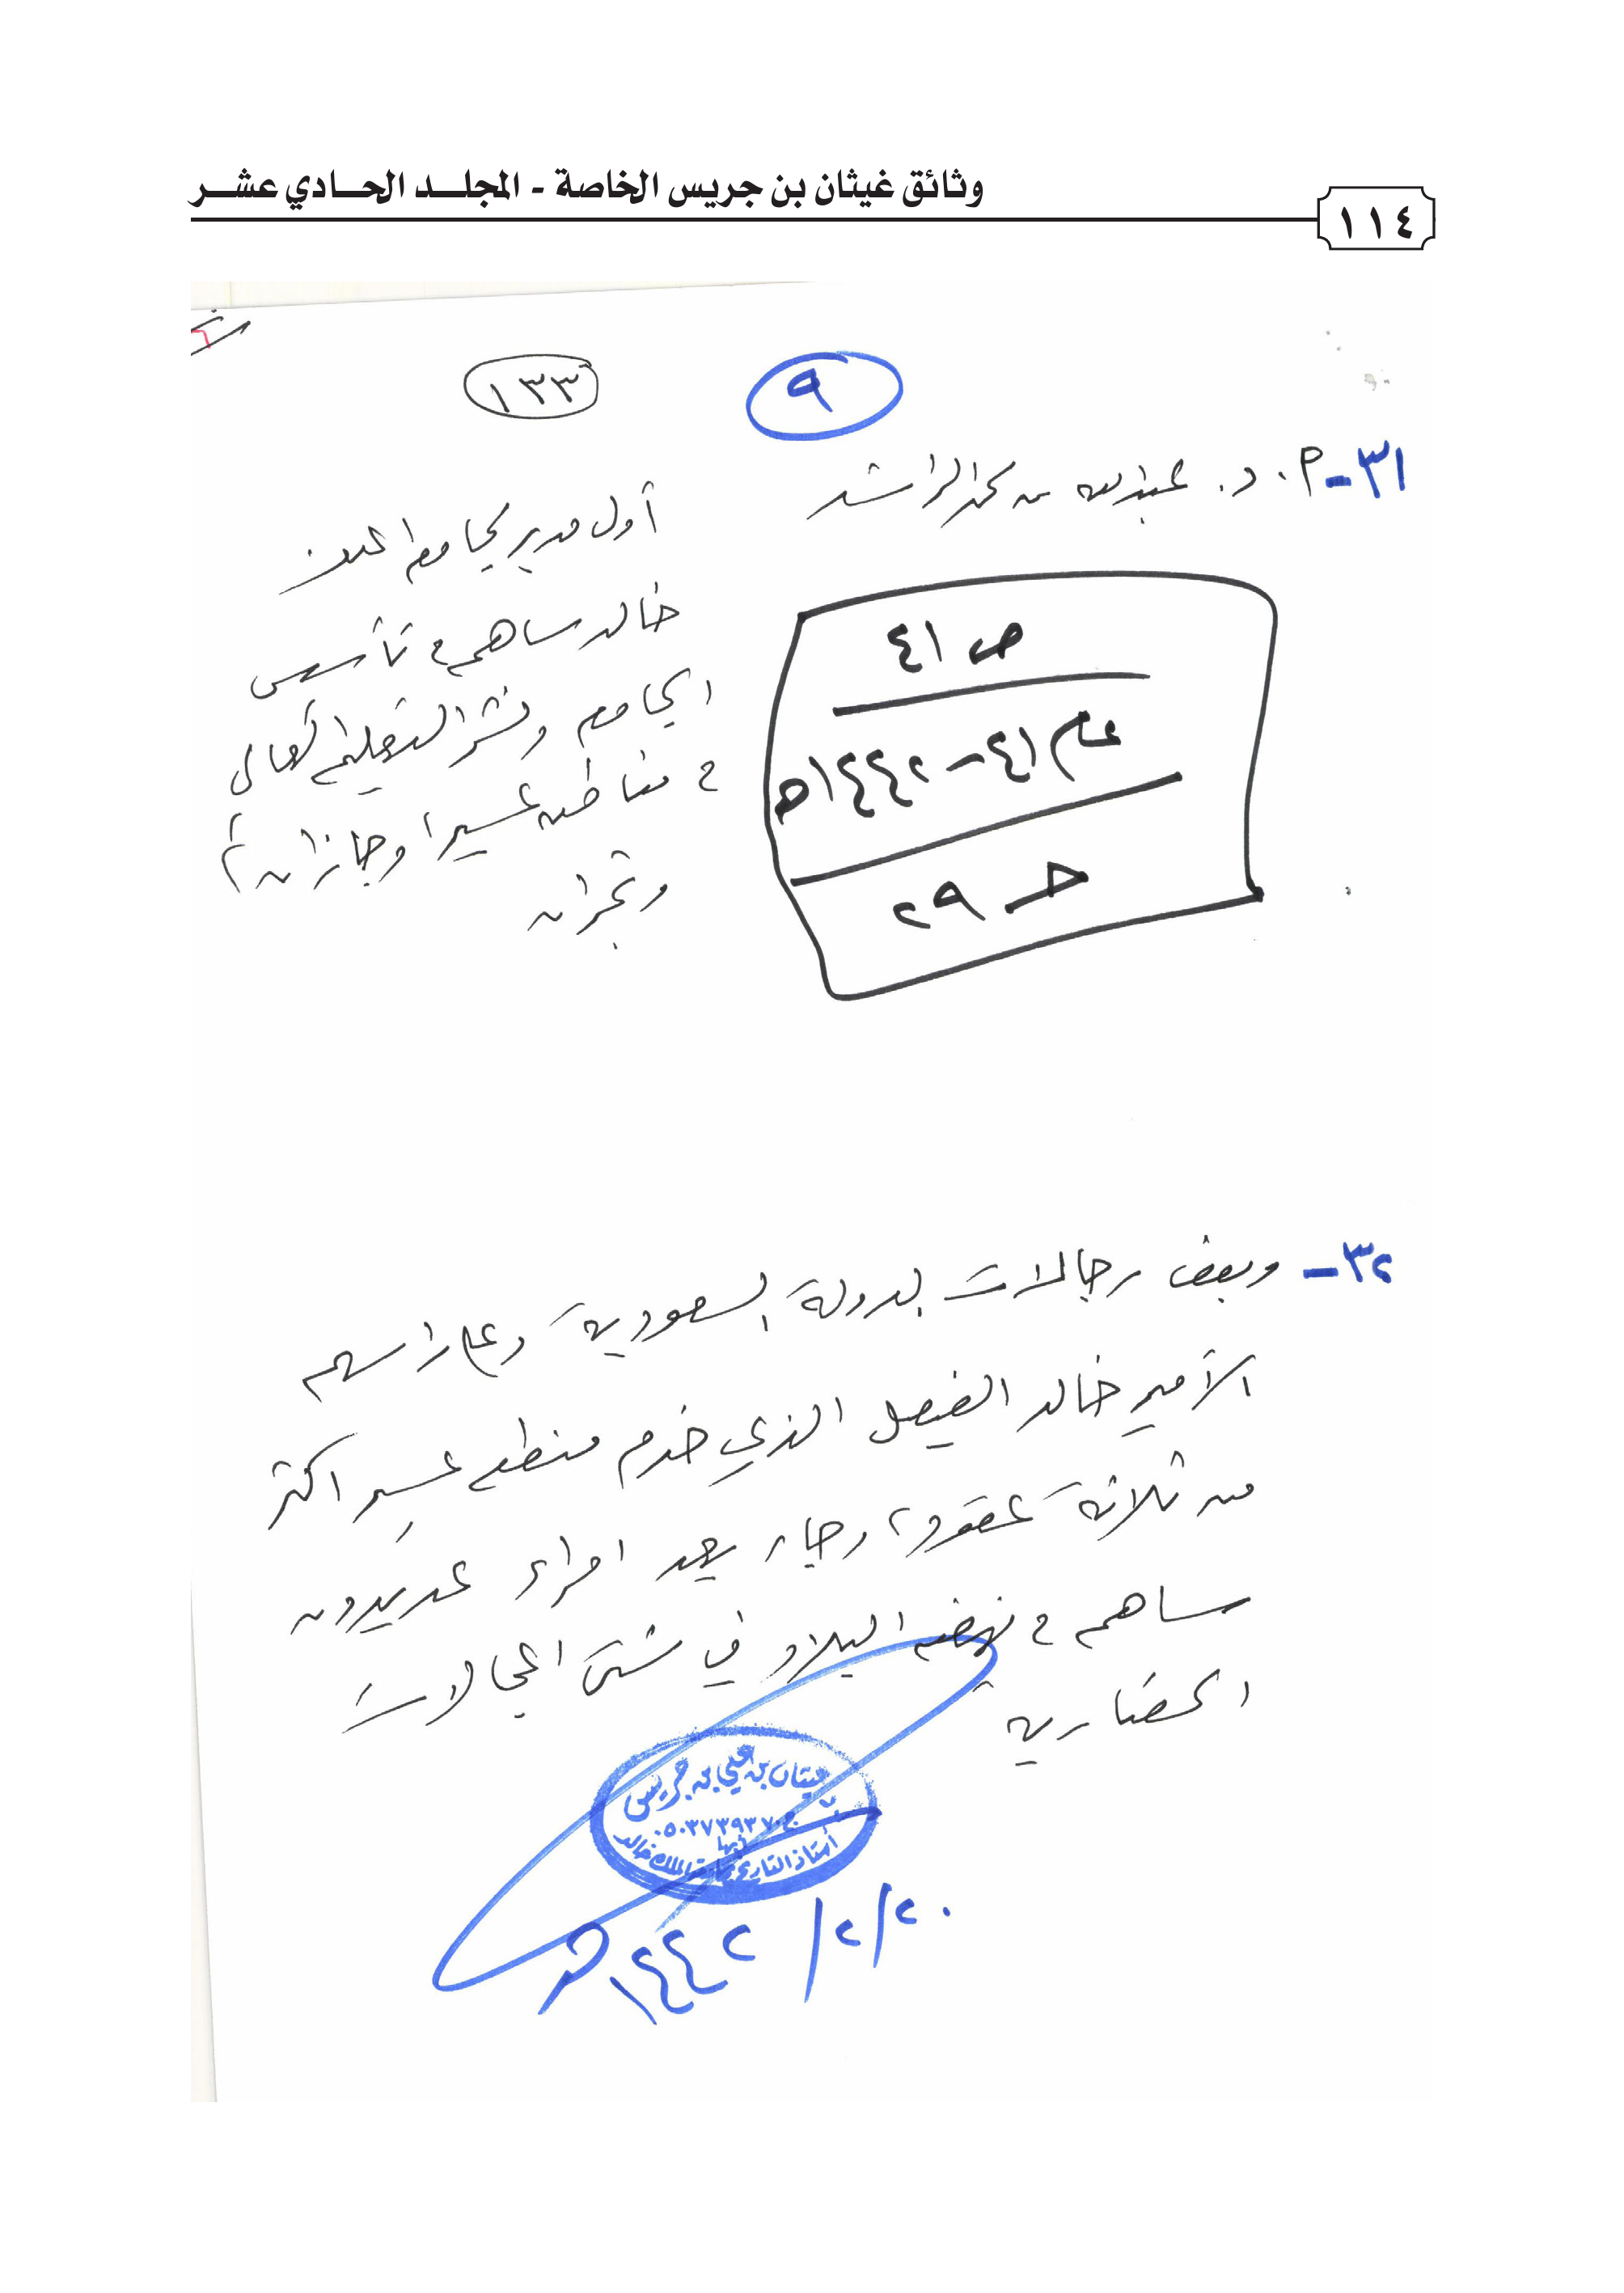 وثائق غيثان بن جريس الخاصة - المجلد الحادي عشر
١١٤
١٣٣
٩
٣١- أ. د. عبدالله بن محمد الراشد
أول مدير لجامعة الملك
خالد ساهم في تأسيس
الجامعة ونشر التعليم العالي
في مناطق عسير، وجازان،
ونجران
ص ٤١
عام ٤١-١٤٤٢هـ
جـ ٢٩
٣٢- وبعض رجالات الدولة السعودية وعلى رأسهم
الأمير خالد الفيصل الذي خدم منطقة عسير أكثر
من ثلاثة عقود، وجاء بعده أمراء عديدون
ساهم في نهضة البلاد في شتى المجالات
الحضارية
غيثان بن علي بن جريس
ج ٠٥٠٣٧٣٩٣٧٠
أبها
أستاذ التاريخ بجامعة الملك خالد
٢٠/٢/١٤٤٢هـ